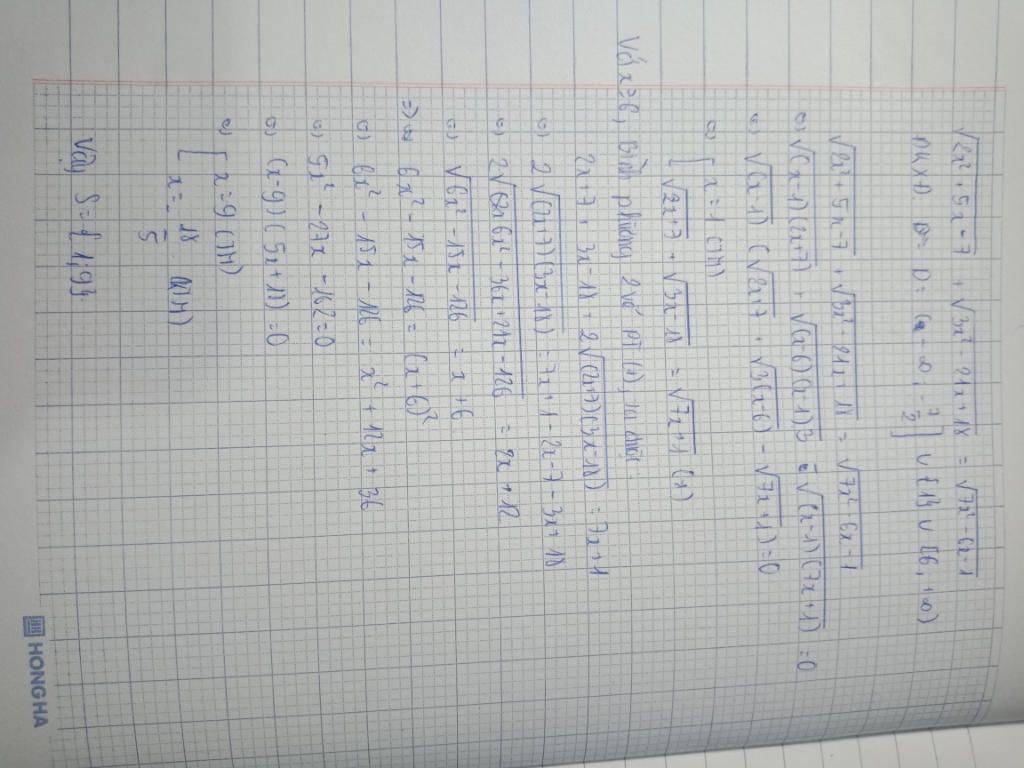 √(2x² + 5x - 7) + √(3x² - 21x + 18) = √(7x² - 6x - 1)
ĐKXĐ: D = (-∞; -7/2] ∪ {1} ∪ [6, +∞)
√(2x² + 5x - 7) + √(3x² - 21x + 18) = √(7x² - 6x - 1)
⇔ √((x-1)(2x+7)) + √((x-6)(x-1)3) - √((x-1)(7x+1)) = 0
⇔ √(x-1) (√(2x+7) + √(3(x-6)) - √(7x+1)) = 0
⇔ [ x = 1 (TM)
√(2x+7) + √(3x-18) = √(7x+1) (*)
Với x ≥ 6, Bình phương 2 vế PT (*), ta được:
2x+7 + 3x-18 + 2√((2x+7)(3x-18)) = 7x+1
⇔ 2√((2x+7)(3x-18)) = 7x+1 - 2x-7 - 3x+18
⇔ 2√(6x² - 36x + 21x - 126) = 2x + 12
⇔ √(6x² - 15x - 126) = x + 6
⇒ 6x² - 15x - 126 = (x+6)²
⇔ 6x² - 15x - 126 = x² + 12x + 36
⇔ 5x² - 27x - 162 = 0
⇔ (x-9)(5x+18) = 0
⇔ [ x = 9 (TM)
x = -18/5
Vậy S = {1,9}
HONG HA